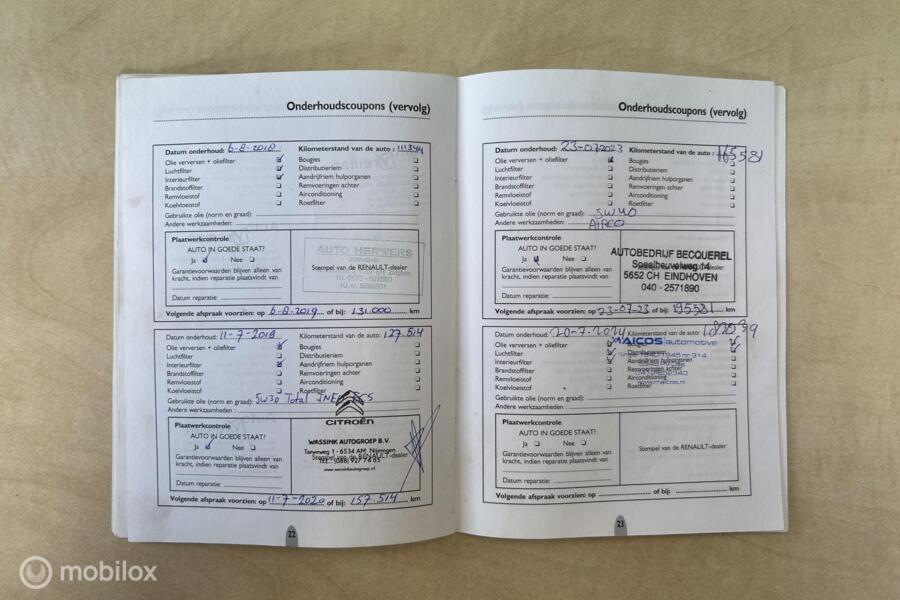 Onderhoudscoupons (vervolg)
Datum onderhoud: 6-8-2018 Kilometerstand van de auto: 111344
Olie verversen + oliefilter Bougies
Luchtfilter Distributieriem
Interieurfilter Aandrijfriem hulporganen
Brandstoffilter Remvoeringen achter
Remvloeistof Airconditioning
Koelvloeistof Roetfilter
Gebruikte olie (norm en graad):
Andere werkzaamheden:
Plaatwerkcontrole
AUTO IN GOEDE STAAT?
Ja Nee
Garantievoorwaarden blijven alleen van
kracht, indien reparatie plaatsvindt van
Datum reparatie:
AUTO HERWERS
Stempel van de RENAULT-dealer
Volgende afspraak voorzien: op 6-8-2019 of bij: 131.000 km
Datum onderhoud: 11-7-2019 Kilometerstand van de auto: 127.514
Olie verversen + oliefilter Bougies
Luchtfilter Distributieriem
Interieurfilter Aandrijfriem hulporganen
Brandstoffilter Remvoeringen achter
Remvloeistof Airconditioning
Koelvloeistof Roetfilter
Gebruikte olie (norm en graad): 5W30 Total
Andere werkzaamheden:
Plaatwerkcontrole
AUTO IN GOEDE STAAT?
Ja Nee
Garantievoorwaarden blijven alleen van
kracht, indien reparatie plaatsvindt van
Datum reparatie:
CITROËN
WASSINK AUTOGROEP B.V.
Tarweweg 1 - 6534 AM Nijmegen
Stempel van de RENAULT-dealer
TEL.: (088) 927 74 65
www.wassinkautogroep.nl
Volgende afspraak voorzien: op 11-7-2020 of bij: 157.514 km
22
Onderhoudscoupons (vervolg)
Datum onderhoud: 23-072023 Kilometerstand van de auto: 165581
Olie verversen + oliefilter Bougies
Luchtfilter Distributieriem
Interieurfilter Aandrijfriem hulporganen
Brandstoffilter Remvoeringen achter
Remvloeistof Airconditioning
Koelvloeistof Roetfilter
Gebruikte olie (norm en graad): 5W40
Andere werkzaamheden: AIRCO
Plaatwerkcontrole
AUTO IN GOEDE STAAT?
Ja Nee
Garantievoorwaarden blijven alleen van
kracht, indien reparatie plaatsvindt van
Datum reparatie:
AUTOBEDRIJF BECQUEREL
Speelheuvelweg 14
5652 CH EINDHOVEN
040 - 2571890
Volgende afspraak voorzien: op 23-07-23 of bij: 195581 km
Datum onderhoud: 20-7-2024 Kilometerstand van de auto:
Olie verversen + oliefilter
MAICOS automotive
Luchtfilter Distributieriem
Interieurfilter Aandrijfriem hulporganen
Brandstoffilter Remvoeringen achter
Remvloeistof Airconditioning
www.maicos.nl
Koelvloeistof Roetfilter
Gebruikte olie (norm en graad):
Andere werkzaamheden:
Plaatwerkcontrole
AUTO IN GOEDE STAAT?
Ja Nee
Garantievoorwaarden blijven alleen van
kracht, indien reparatie plaatsvindt van
Datum reparatie:
Stempel van de RENAULT-dealer
Volgende afspraak voorzien: op of bij: km
23
mobilox